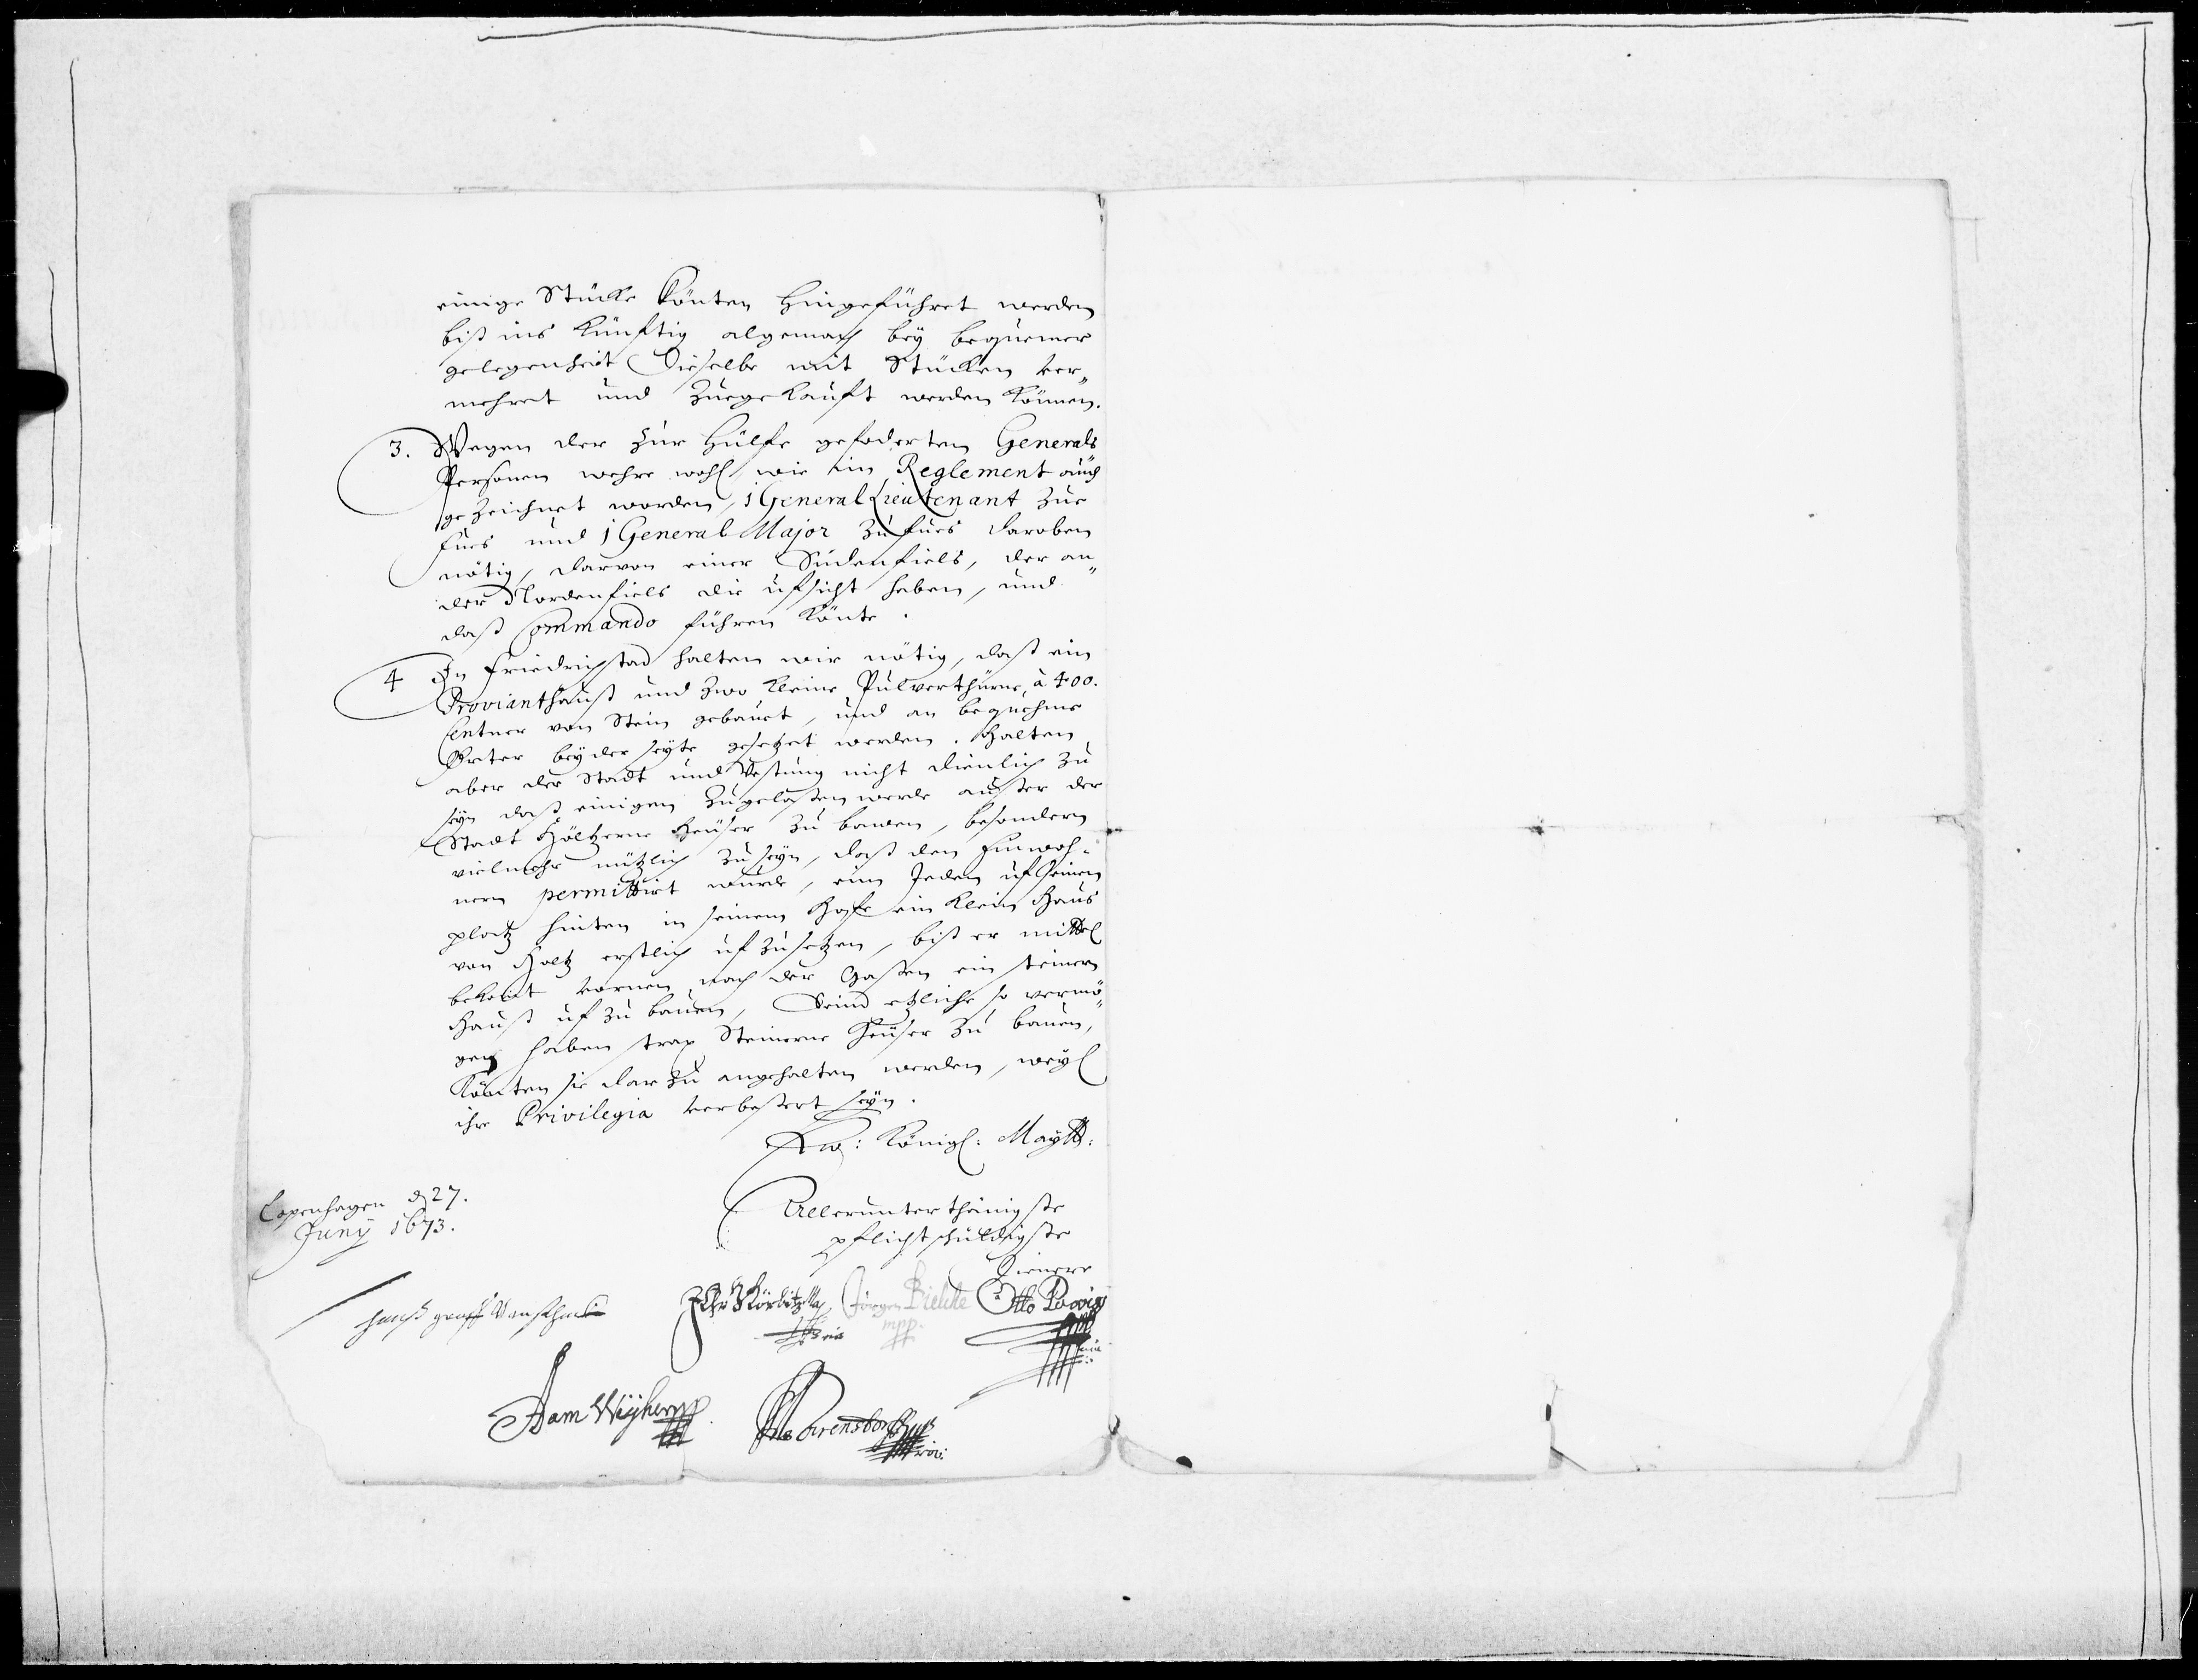 einige Stücke könten hingeführet werden
biß ins künftig algemach bey bequemer
gelegenheit Dieselbe mit Stücken ver„
mehret und zuegekauft werden können.
3. Wegen der zur hülfe gefoderten Generals
Personen wehre wohl, wie im Reglement auch
gezeichnet worden, 1 General Lieutenant zue
fues und 1 General Major zu fues daroben
nötig, darvon einer Südenfiels, der an„
der Nordenfiels die ufsicht haben, und
daß Commando führen könte.
4 In Friedrichstad halten wir nötig, daß ein
Provianthauß und zwo kleine Pulverthürne, à 400.
Centner von Stein gebauet, und an bequehme
Örter beyderseyts gesetzet werden. Halten
aber der Stadt und Vestung nicht dienlich zu
seyn daß einigen zugelaßen werde außer der
Stadt Höltzerne Heuser zu bauen, besondern
vielmehr nützlich zu seyn, daß den Einwoh„
nern permittirt würde, eim Jeden uf seinen
platz hinten in seinem Hofe ein klein Haus
von Holtz erstlich uf zusetzen, biß er mittel
bekomt vornen nach der Gaßen ein steinern
Hauß uf zu bauen, Seind etzliche so vermö„
gen haben strax Steinerne Heuser zu bauen,
könten sie darzu angehalten werden, weyl
ihre Privilegia verbeßert seyn.
Ew: Königl: Maytt:
Copenhagen d 27.
Juny 1673.
Allerunterthänigste
pflichtschuldigste
Dienere
Jörgen Bielcke Otto Powisch
mpp.
Adam Weyher mpp